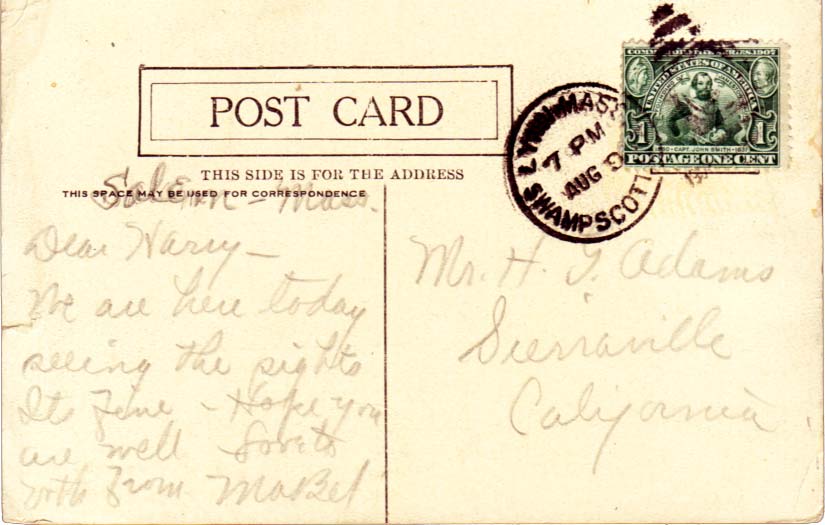 POST CARD
THIS SIDE IS FOR THE ADDRESS
THIS SPACE MAY BE USED FOR CORRESPONDENCE
COMMEMORATIVE SERIES 1907
UNITED STATES OF AMERICA
1 1
1580 - CAPT. JOHN SMITH - 1631
POSTAGE ONE CENT
LYNN, MASS
7 PM
AUG 9
SWAMPSCOTT
Salem - Mass.
Dear Harry -
We are here today
seeing the sights
Its fine - Hope you
are well - Love to
both from Mabel
Mr. H. G. Adams
Sierraville
California